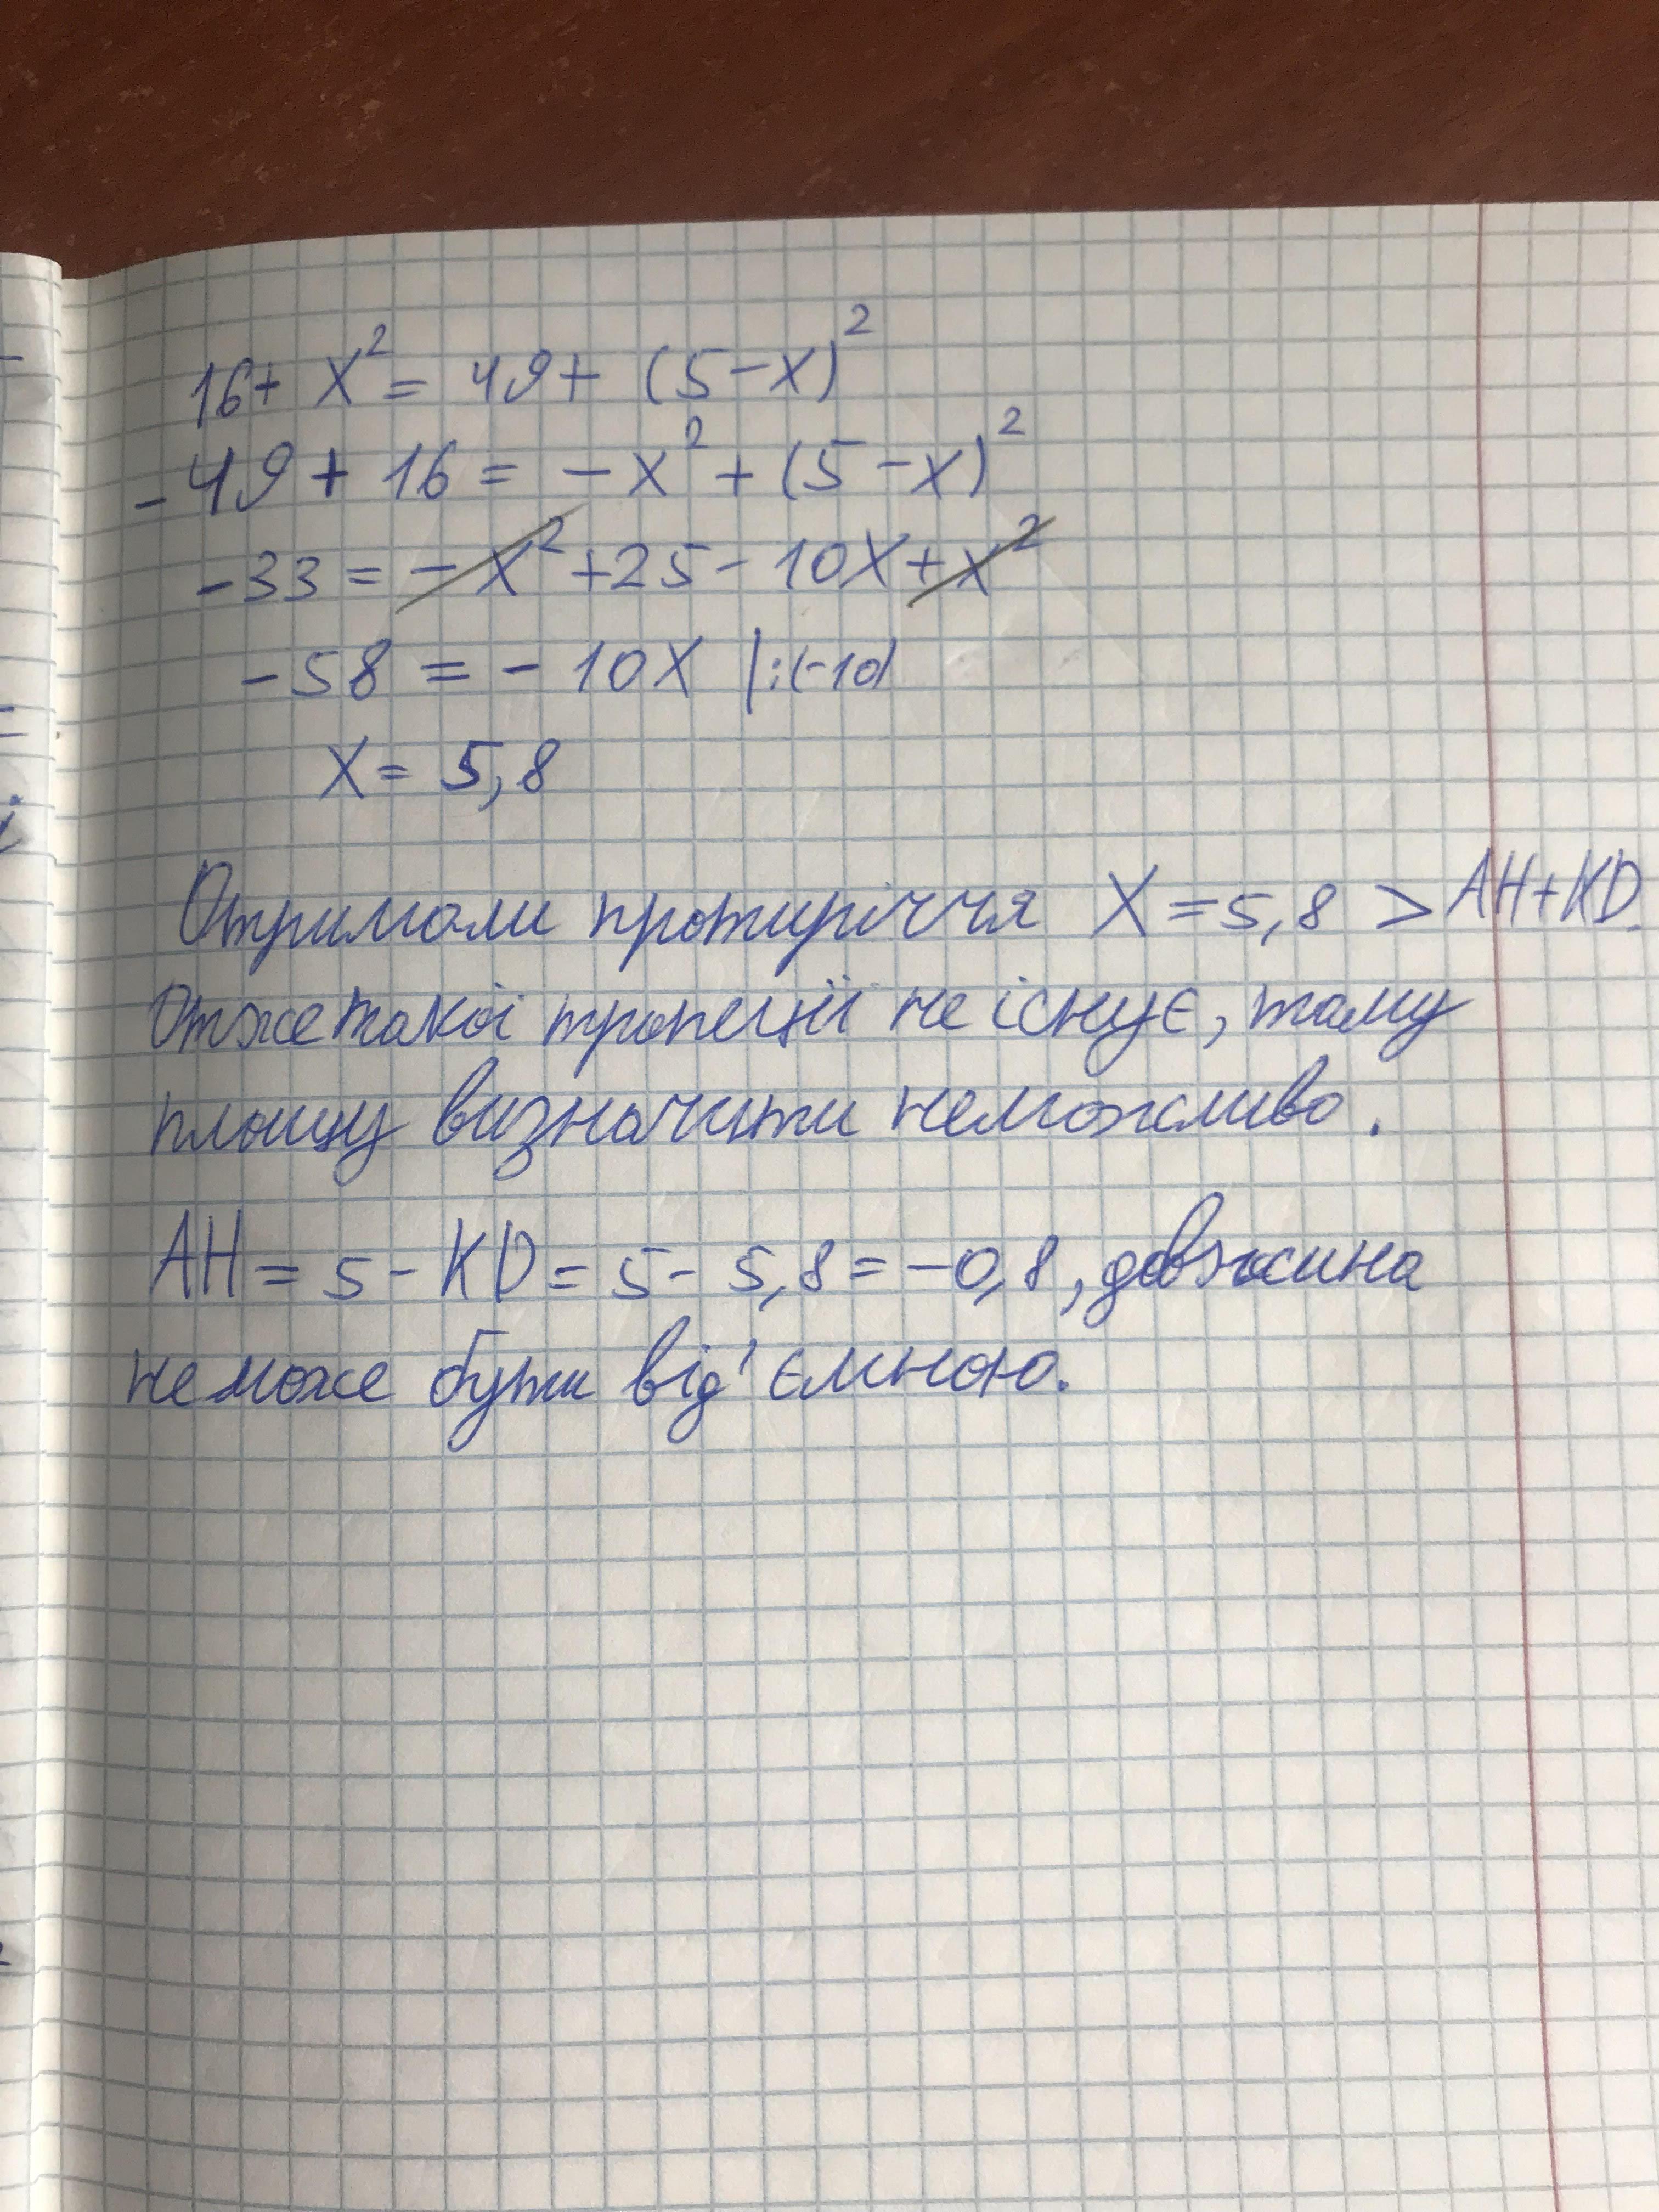 16+ x² = 49+ (5-x)²
-49 + 16 = -x² + (5-x)²
-33 = -x² +25- 10x+x²
-58 = - 10x |:(-10)
x= 5,8
Отримали протиріччя x=5,8 > AH+KD.
Отже такої трапеції не існує, тому
площу визначити неможливо.
AH = 5 - KD = 5 - 5,8 = -0,8, довжина
не може бути від'ємною.